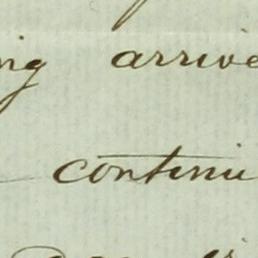 ing arrive
continu